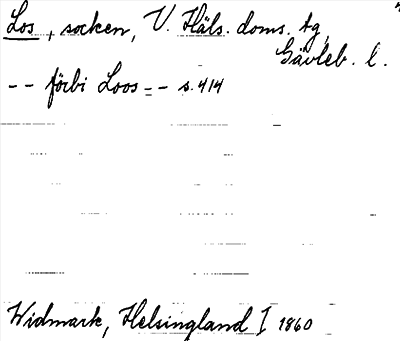 Los, socken, V. Häls. doms. tg,
Gävleb. l.
-- förbi Loos -- s. 414
Widmark, Helsingland I 1860